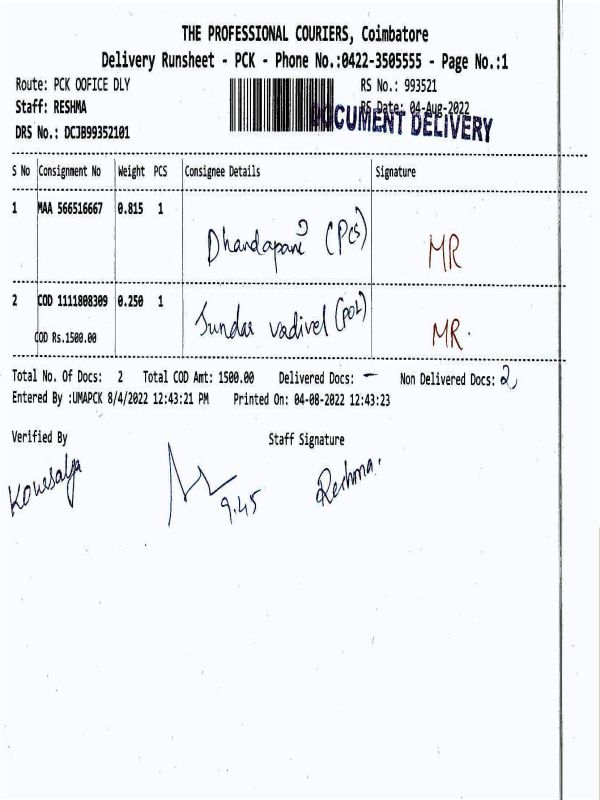 THE PROFESSIONAL COURIERS, Coimbatore
Delivery Runsheet - PCK - Phone No.:0422-3505555 - Page No.:1
Route: PCK OOFICE DLY RS No.: 993521
Staff: RESHMA RS Date: 04-Aug-2022
DOCUMENT DELIVERY
DRS No.: DCJB99352101
S No Consignment No Weight PCS Consignee Details Signature
1 MAA 566516667 0.815 1 Dhandapani (PCS) MR
2 COD 1111808309 0.250 1 Sundar vadivel (POL) MR.
COD Rs.1500.00
Total No. Of Docs: 2 Total COD Amt: 1500.00 Delivered Docs: — Non Delivered Docs: 2
Entered By :UMAPCK 8/4/2022 12:43:21 PM Printed On: 04-08-2022 12:43:23
Verified By Staff Signature
Kowsalya 9.45 Reshma.